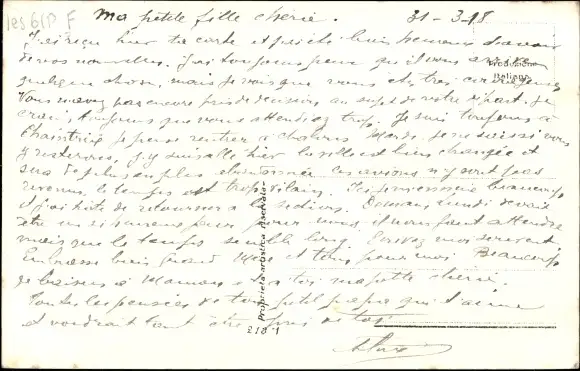 Ma petite fille chérie. 31-3-18
J'ai reçu hier ta carte et je suis bien heureux d'avoir
de vos nouvelles. J'ai toujours peur qu'il vous arrive
quelque chose, mais je vois que vous êtes très courageuses
Vous n'avez pas encore pris de décision au sujet de votre départ. Je
crois toujours que vous attendez trop. Je suis toujours à
Chaintrix je pense rentrer à Chalons Mardi, je ne sais si nous
y resterons, j'y suis allé hier la ville est bien changée et
sera de plus en plus abandonnée les avions n'y sont pas
revenus, le temps est trop vilain. Je beaucoup
et j'ai hâte de retourner à Demain Lundi devait
être un jour pour nous, il nous faut attendre
mais que le temps semble long. Ecrivez moi souvent
Embrasse bien grand Mère et tous pour moi Beaucoup
de baisers à Maman et à toi ma petite chérie.
Toutes les pensées de ton petit papa qui t'aime
et voudrait tant être près de toi
Produzione
Italiana
Proprietà artistica riservata
210-1